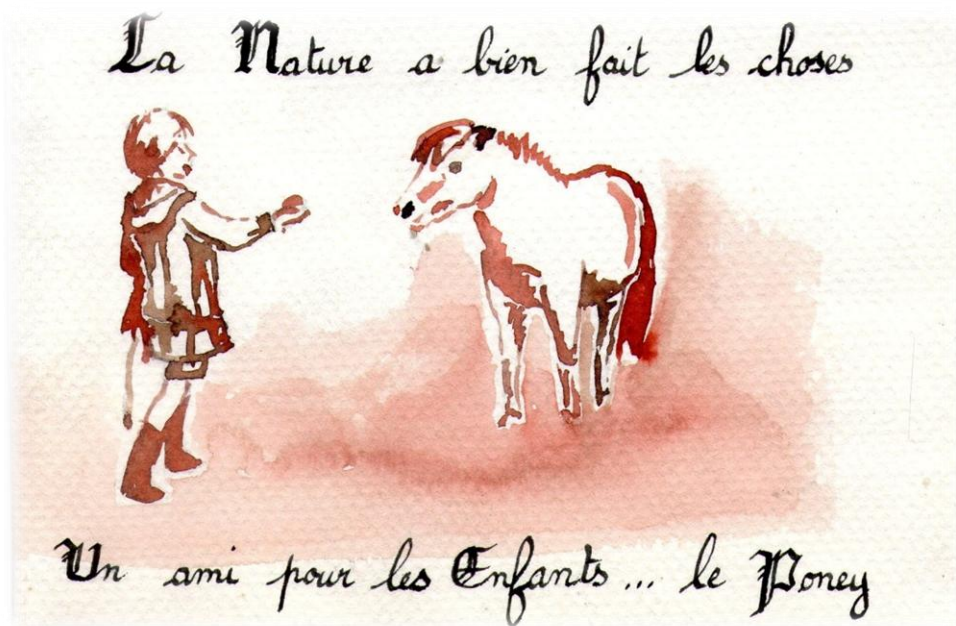 La Nature a bien fait les choses
Un ami pour les Enfants... le Poney